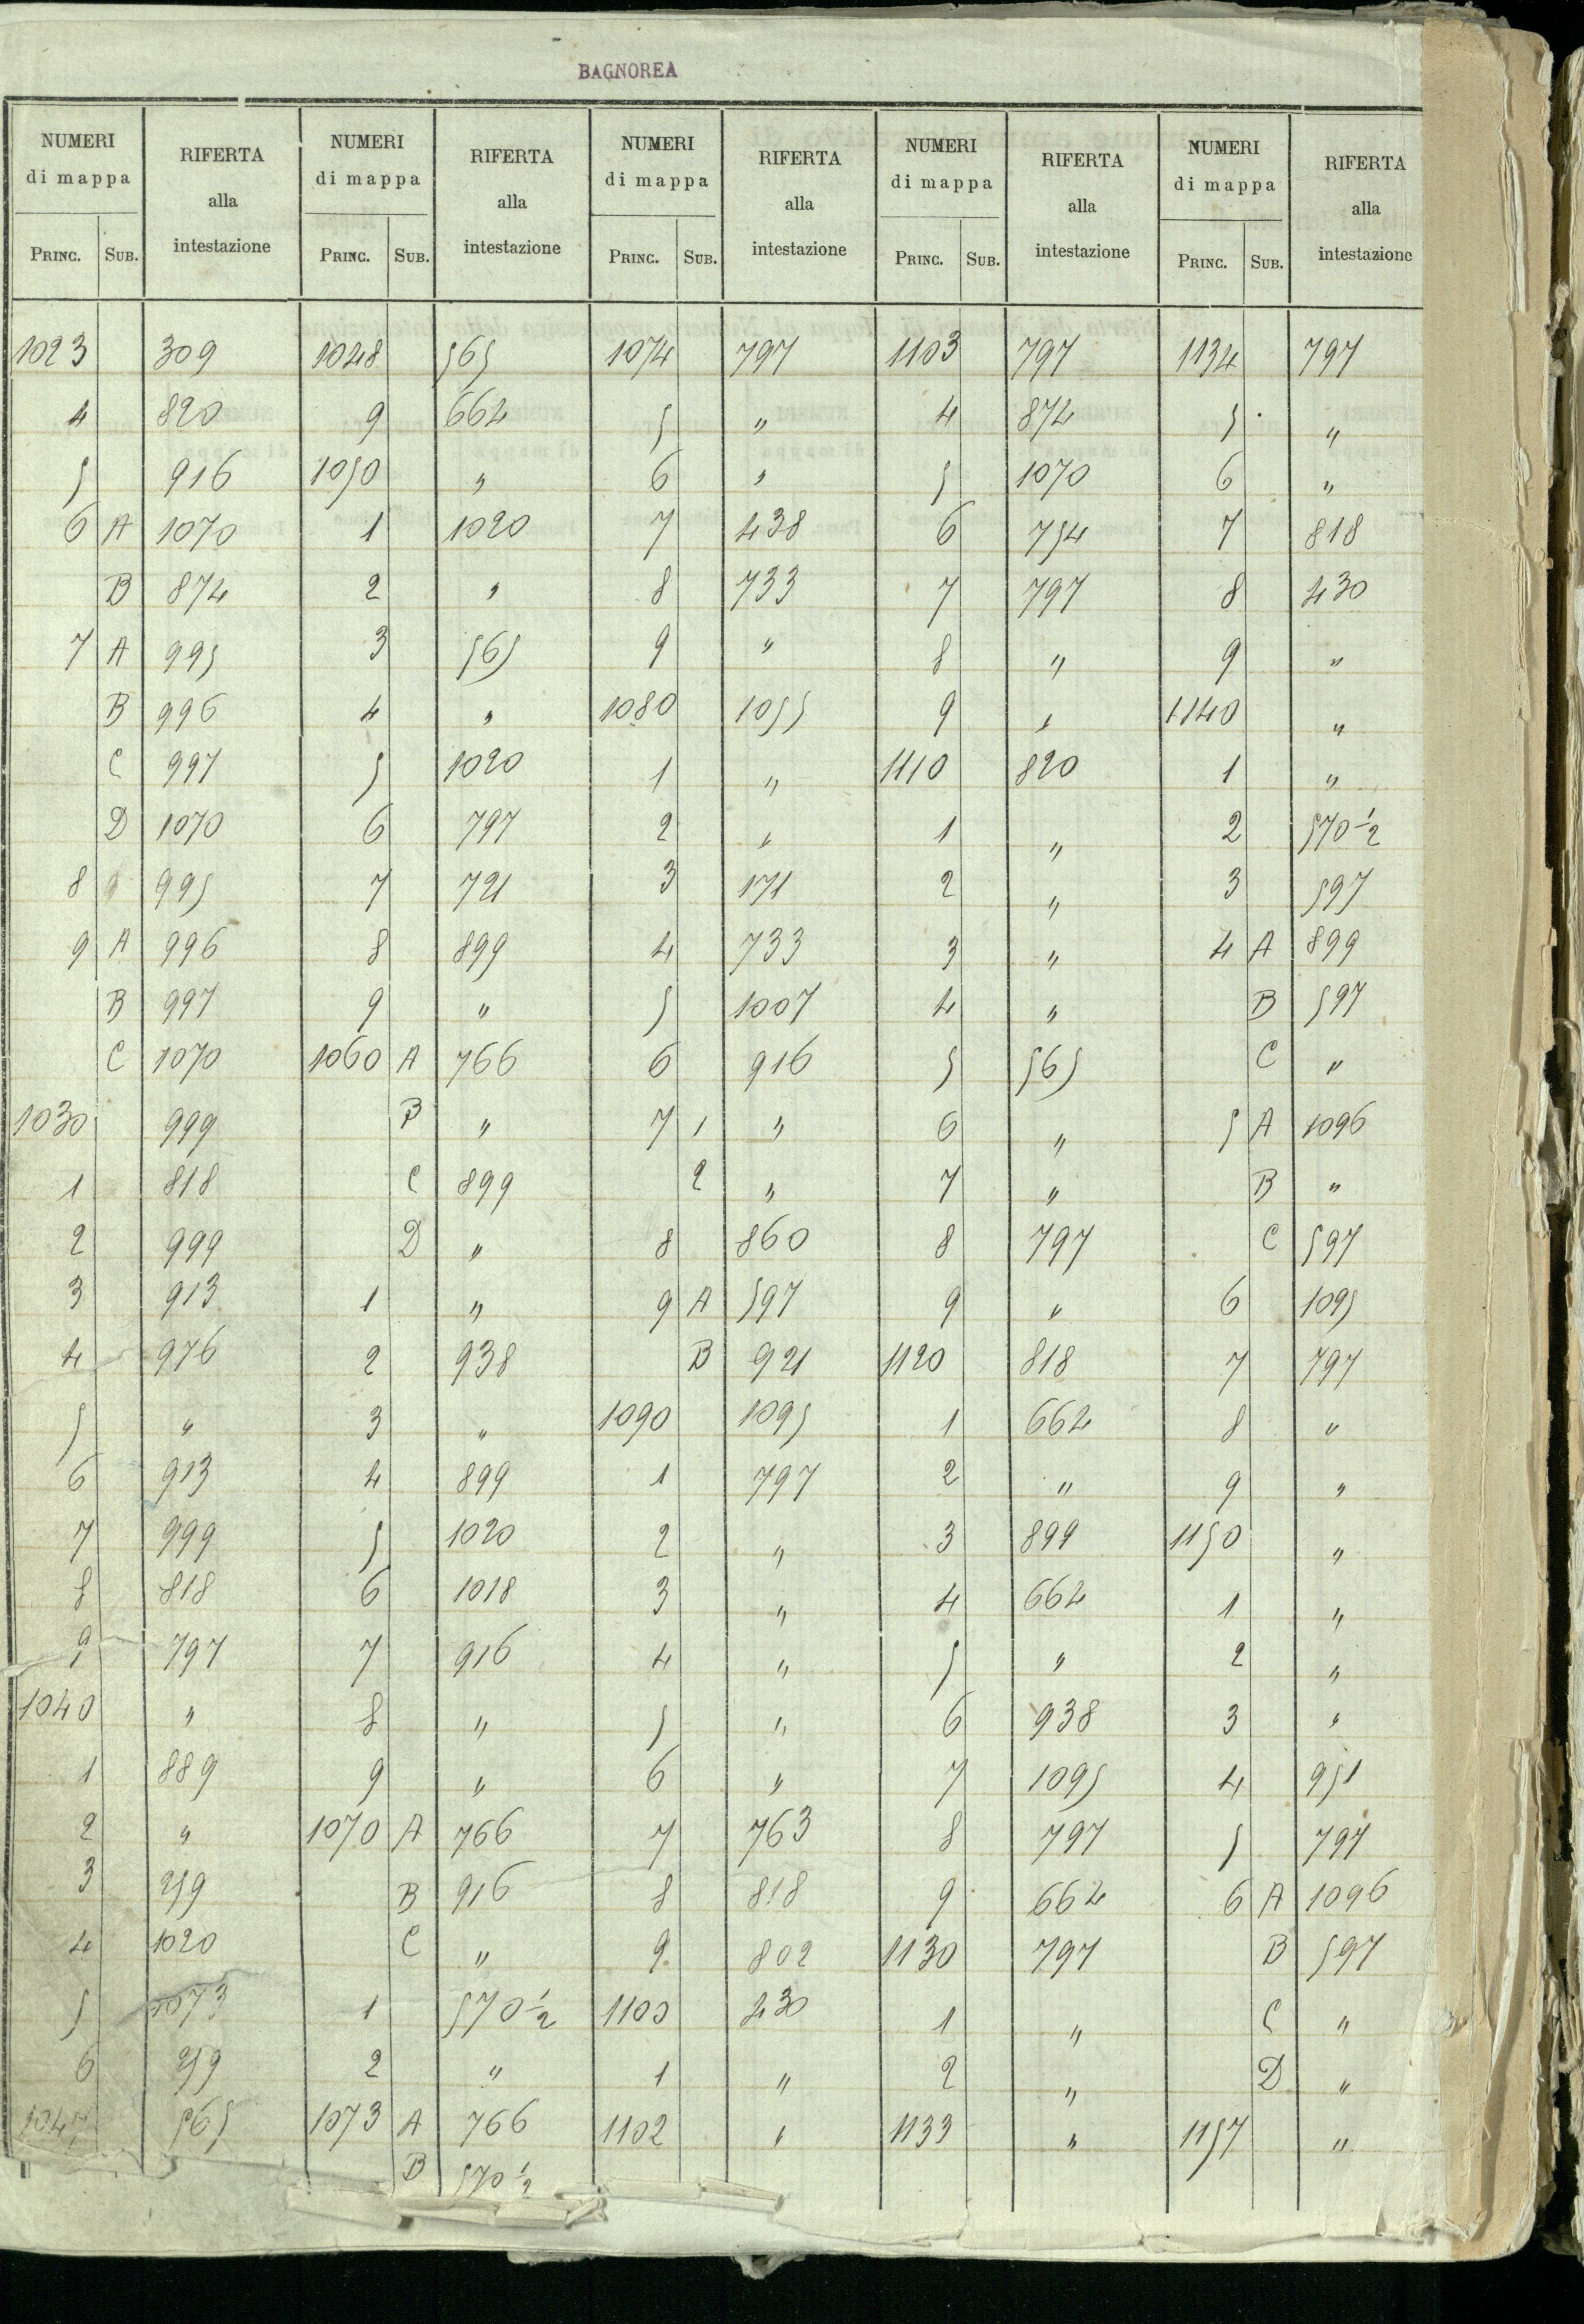 BAGNOREA
NUMERI di mappa RIFERTA alla intestazione NUMERI di mappa RIFERTA alla intestazione NUMERI di mappa RIFERTA alla intestazione NUMERI di mappa RIFERTA alla intestazione NUMERI di mappa RIFERTA alla intestazione
PRINC. SUB. PRINC. SUB. PRINC. SUB. PRINC. SUB. PRINC. SUB.
1023 309 1048 565 1074 797 1103 797 1134 797
4 820 9 664 5 " 4 874 5 "
5 916 1050 " 6 " 5 1070 6 "
6 A 1070 1 1020 7 438 6 754 7 818
B 874 2 " 8 733 7 797 8 430
7 A 995 3 565 9 " 8 " 9 "
B 996 4 " 1080 1055 9 " 1140 "
C 997 5 1020 1 " 1110 820 1 "
D 1070 6 797 2 " 1 " 2 570 1/2
8 995 7 721 3 171 2 " 3 597
9 A 996 8 899 4 733 3 " 4 A 899
B 997 9 " 5 1007 4 " B 597
C 1070 1060 A 766 6 916 5 565 C "
1030 999 B " 7 1 " 6 " 5 A 1096
1 818 C 899 2 " 7 " B "
2 999 D " 8 860 8 797 C 597
3 913 1 " 9 A 597 9 " 6 1095
4 976 2 938 B 921 1120 818 7 797
5 " 3 " 1090 1095 1 664 8 "
6 913 4 899 1 797 2 " 9 "
7 999 5 1020 2 " 3 899 1150 "
8 818 6 1018 3 " 4 664 1 "
9 797 7 916 4 " 5 " 2 "
1040 " 8 " 5 " 6 938 3 "
1 889 9 " 6 " 7 1095 4 951
2 " 1070 A 766 7 763 8 797 5 797
3 259 B 916 8 818 9 664 6 A 1096
4 1020 C " 9 802 1130 797 B 597
5 1073 1 570 1/2 1100 430 1 " C "
6 259 2 " 1 " 2 " D "
1047 565 1073 A 766 1102 " 1133 " 1157 "
B 570 1/2